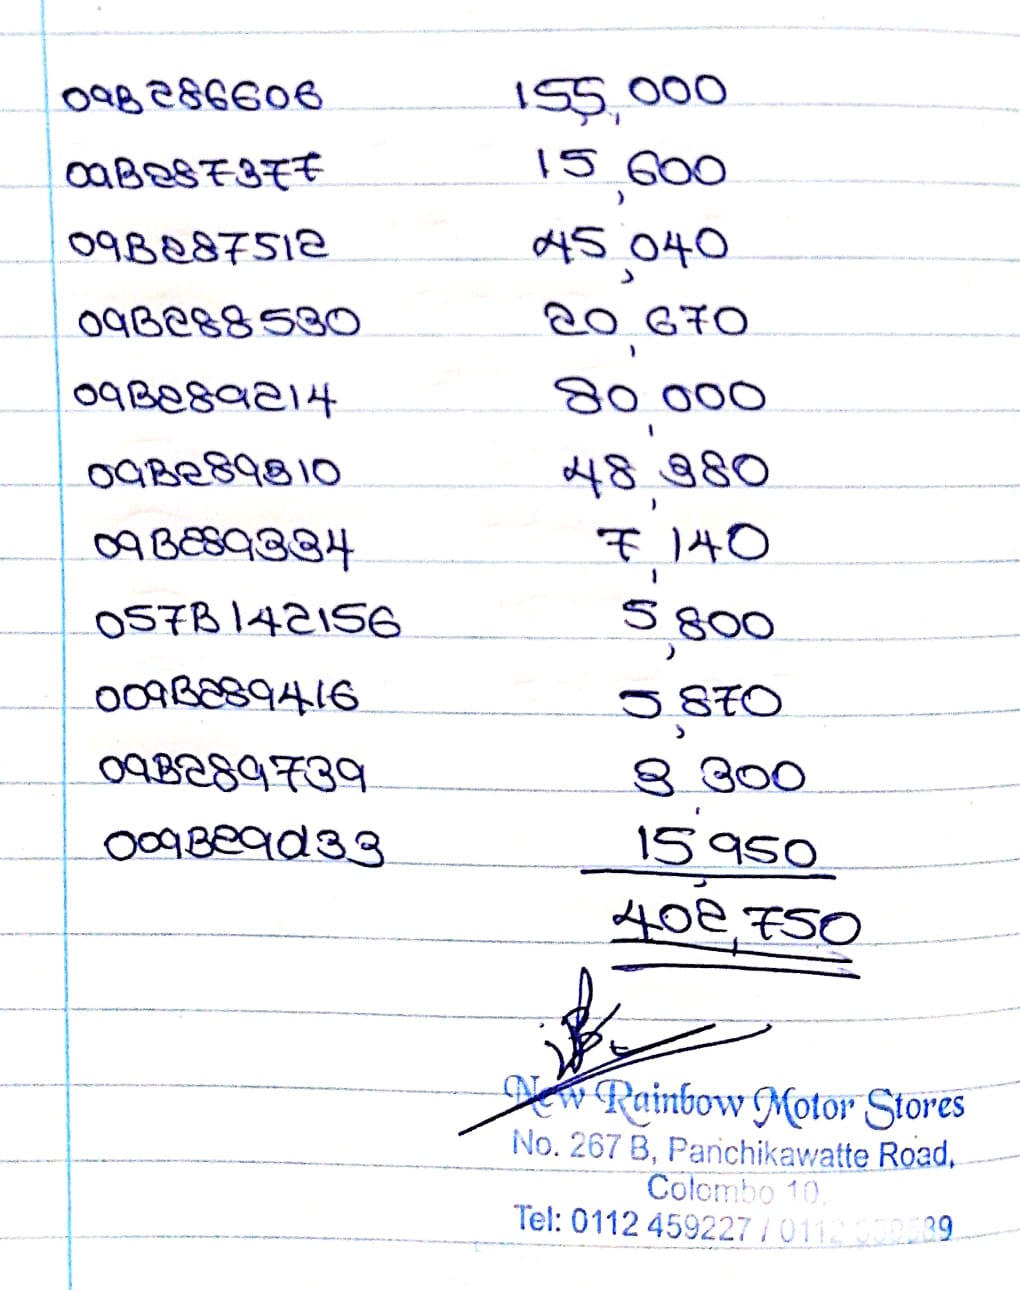 09B286606 155,000
09B287377 15,600
09B287512 45,040
09B288530 20,670
09B289214 80,000
09B289310 48,380
09B289334 7,140
057B142156 5,800
009B289416 5,870
09B289739 3,300
009B290133 15,950
402,750
New Rainbow Motor Stores
No. 267 B, Panchikawatte Road,
Colombo 10.
Tel: 0112 459227 / 0112